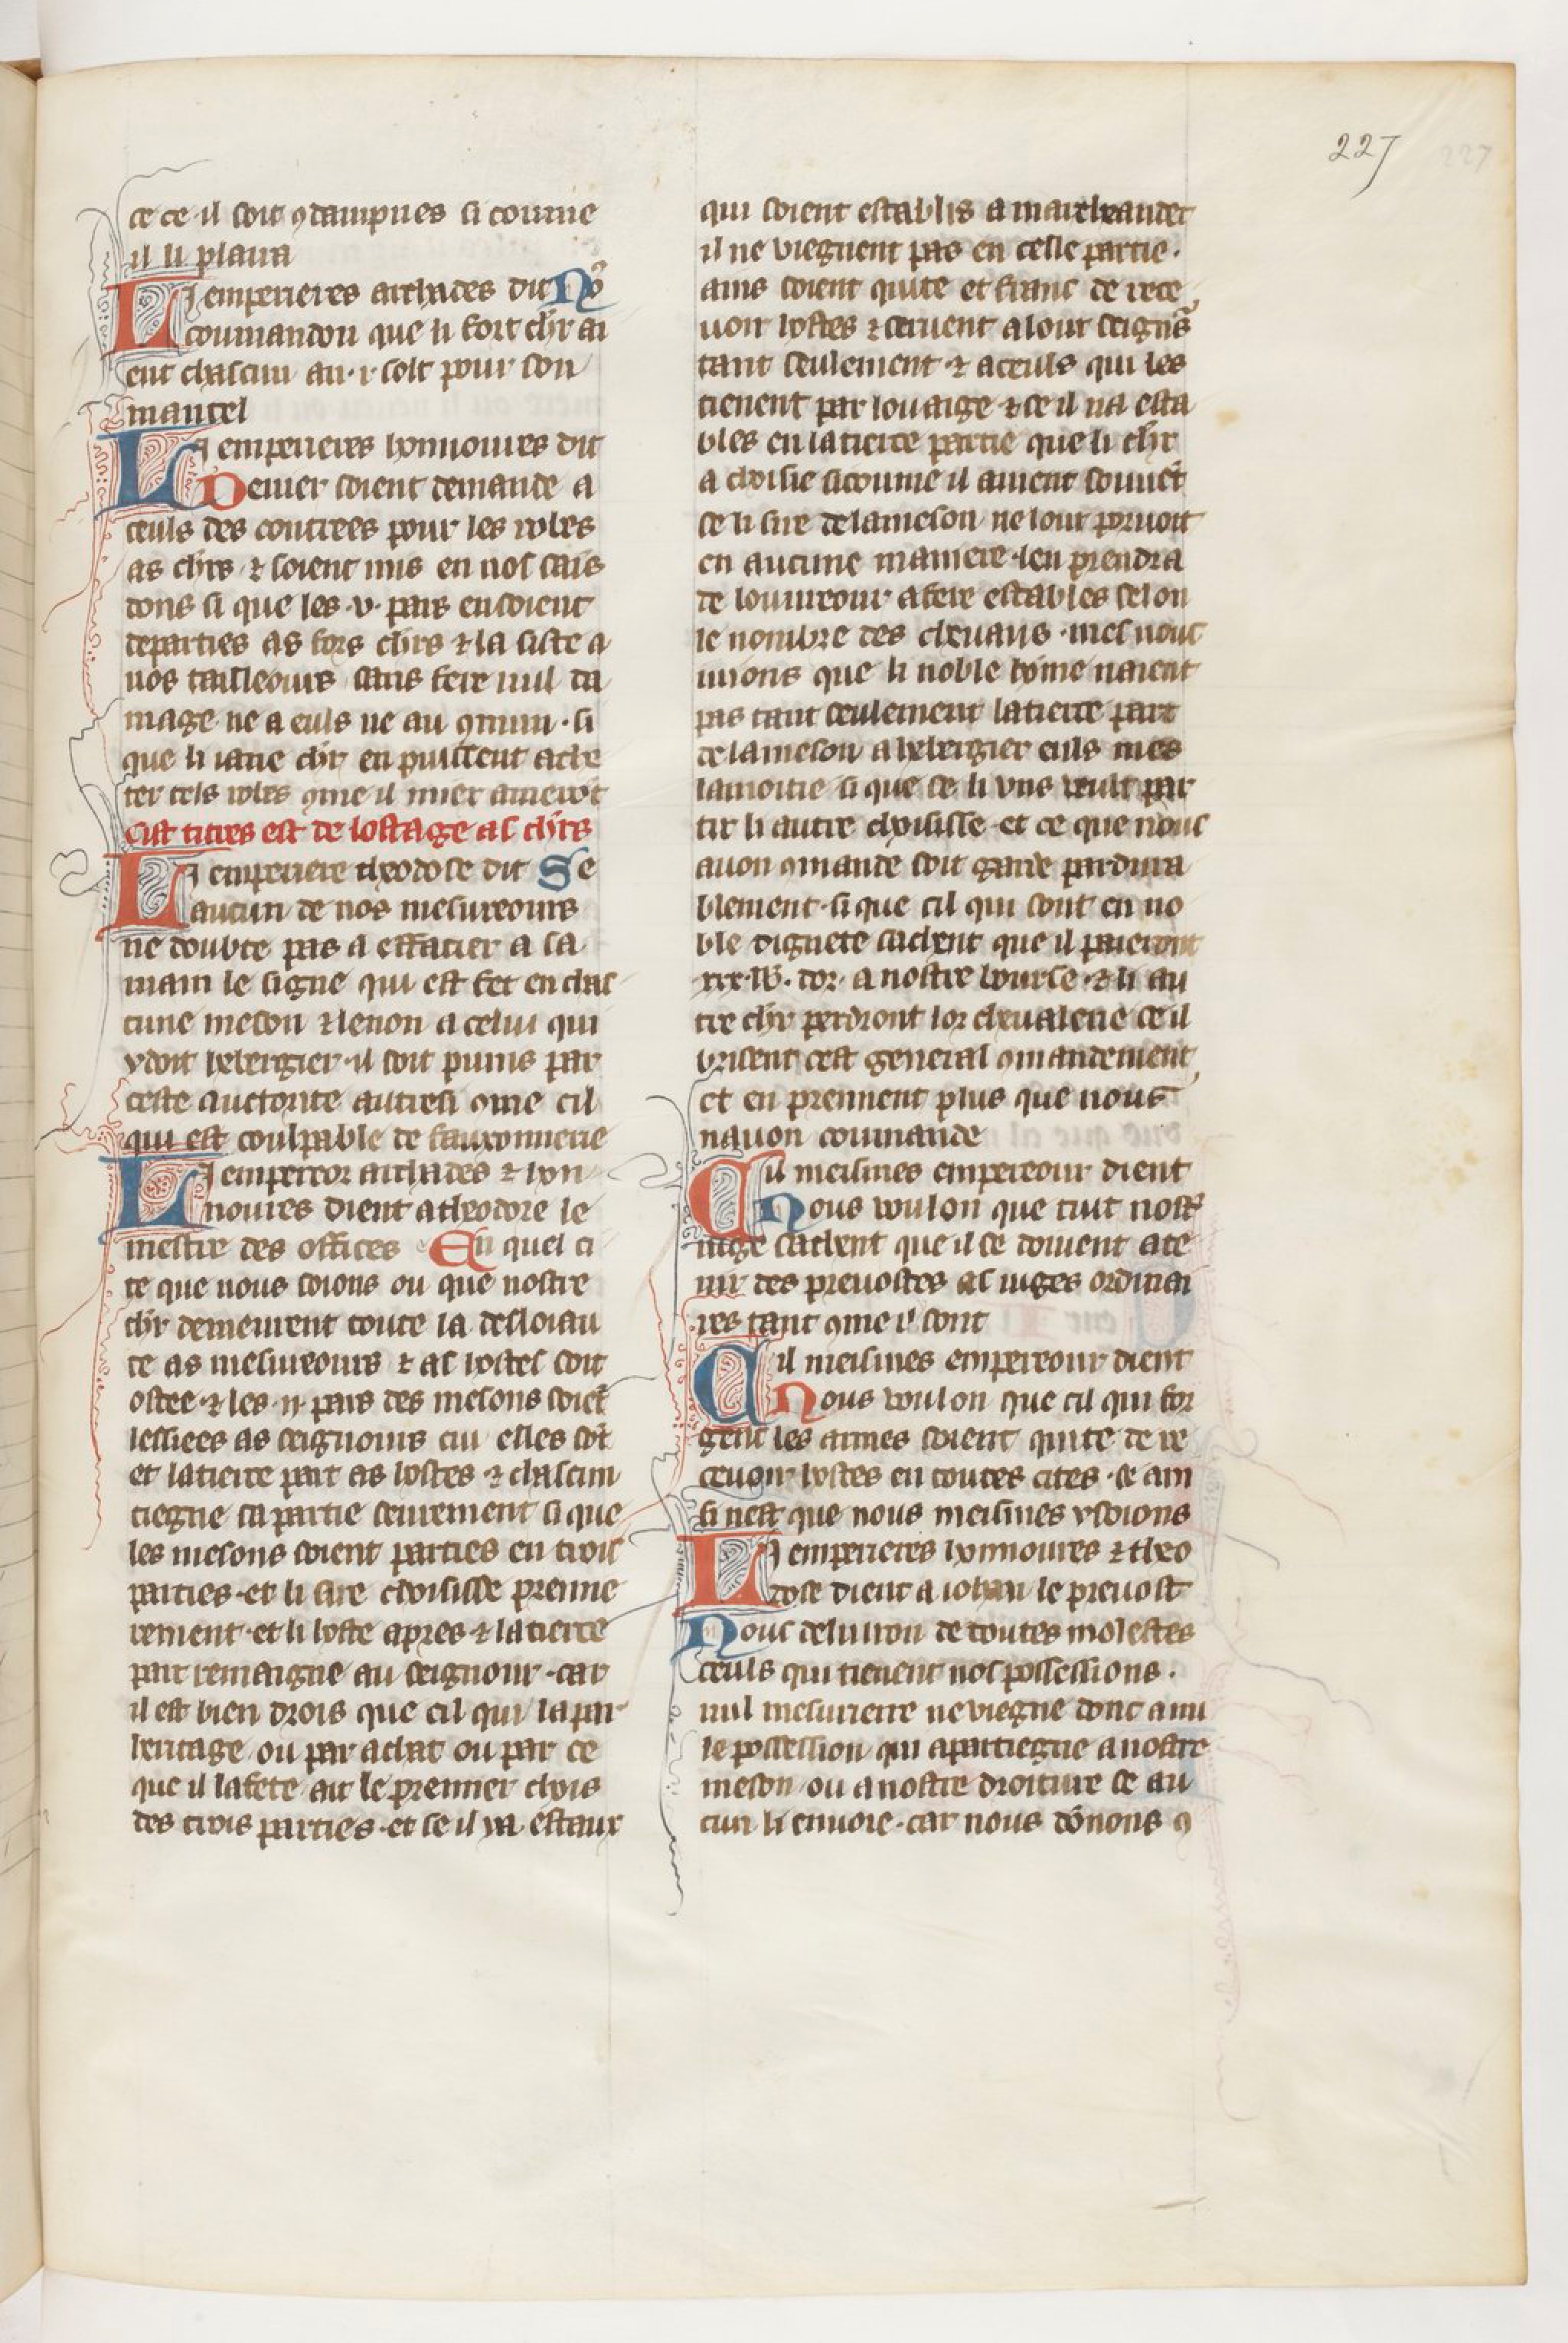 227
ce ce il soit ꝯdampnes si comme
il li plaira
Li emperieres archades dit No᷒
commandon que li fort chr̃ ai
ent chascun an .i. solt pour son
mantel
Li emperieres honnoures dit
Denier soient demande a
ceuls des contrees pour les robes
as chr̃s ⁊ soient mis en nos sais
sons si que les .v. pars en soient
departies as fors chr̃s ⁊ la siste a
nos tailleours sans fere nul da
mage ne a euls ne au ꝯmun . si
que li iane chr̃ en puissent ache
ter tels robes ꝯme il miex ameroĩt
Cist titres est de lostage as chr̃s
Li emperiere theodose dit Se
aucun de nos mesureours
ne doubte pas a effacier a sa
main le signe qui est fet en chas
cune meson ⁊ le non a celui qui
y doit hebergier . il soit punis par
ceste auctorite autresi ꝯme cil
qui est coulpable de fauxonnerie
Li empereor archades ⁊ hon
noures dient a theodore le
mestre des offices En quel ci
te que nous soions ou que nostre
chr̃ demeurent toute la desloiau
te as mesureours ⁊ as hostes soit
ostee . ⁊ les .ii. pars des mesons soiẽt
lessiees as seignours cui elles sõt
et la tierce part as hostes ⁊ chascun
tiegne sa partie seurement si que
les mesons soient parties en trois
parties . et li sire choisisse premie
rement . et li hoste apres ⁊ la tierce
part remaigne au seignour . car
il est bien drois que cil qui la par
heritage ou par achat ou par ce
que il la fete ait le premier chois
des trois parties . et se il ya estaux
qui soient establis a marcheander
il ne viegnent pas en celle partie .
ains soient quite et franc de rece
uoir hostes ⁊ seruent a lour seignrs̃
tant seulement . ⁊ a ceuls qui les
tienent par louaige . ⁊ ce il na esta
bles en la tierce partie que li chr̃
a choisie si comme il auient souuẽt
se li sire de la meson ne lour pruoit
en aucune maniere . len prendra
de louureour a fere estables selon
le nombre des cheuaus . mes nous
iuions que li noble home naient
pas tant seulement la tierce part
de la meson a hebergier euls mes
la moitie si que se li vns veult par
tir li autre choisisse . et ce que nous
auon ꝯmande soit garde pardura
blement . si que cil qui sont en no
ble dignete sachent que il paieront
.xxx. lb̃. dor . a nostre bourse . ⁊ li au
tre chr̃ perdront lor cheualerie se il
brisent cest general ꝯmandement
et en prennent plus que nous
nauon commande
Cil meismes empereour dient
Nous voulon que tuit nostr̃
iuge sachent que il se doiuent ate
nir des preuostes as iuges ordinai
res tant ꝯme il sont
Cil meismes empereour dient
Nous voulon que cil qui for
gent les armes soient quite de re
ceuoir hostes en toutes cites . se ain
si nest que nous meismes y soions
Li emperieres honnoures ⁊ theo
dose dient a iohan le preuost
Nous deliuron de toutes molestes
ceuls qui tienent nos possessions .
nul mesurierre ne viegne donc a nu
le possession qui apartiegne a nostre
meson ou a nostre droiture se au
cun li enuoie . car nous dõnons ꝯ